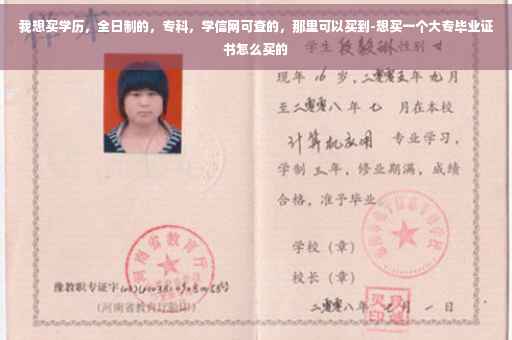 我想买学历，全日制的，专科，学信网可查的，那里可以买到-想买一个大专毕业证
书怎么买的
学生 性别 女
现年 16 岁，二零零五年 九月
至二零零八年 七 月在本校
计算机应用 专业学习，
学制 三年，修业期满，成绩
合格，准予毕业
学校（章）
校长（章）
河南省教育厅
豫教职专证字
（河南省教育厅验印）
二零零八年 七 月 一 日